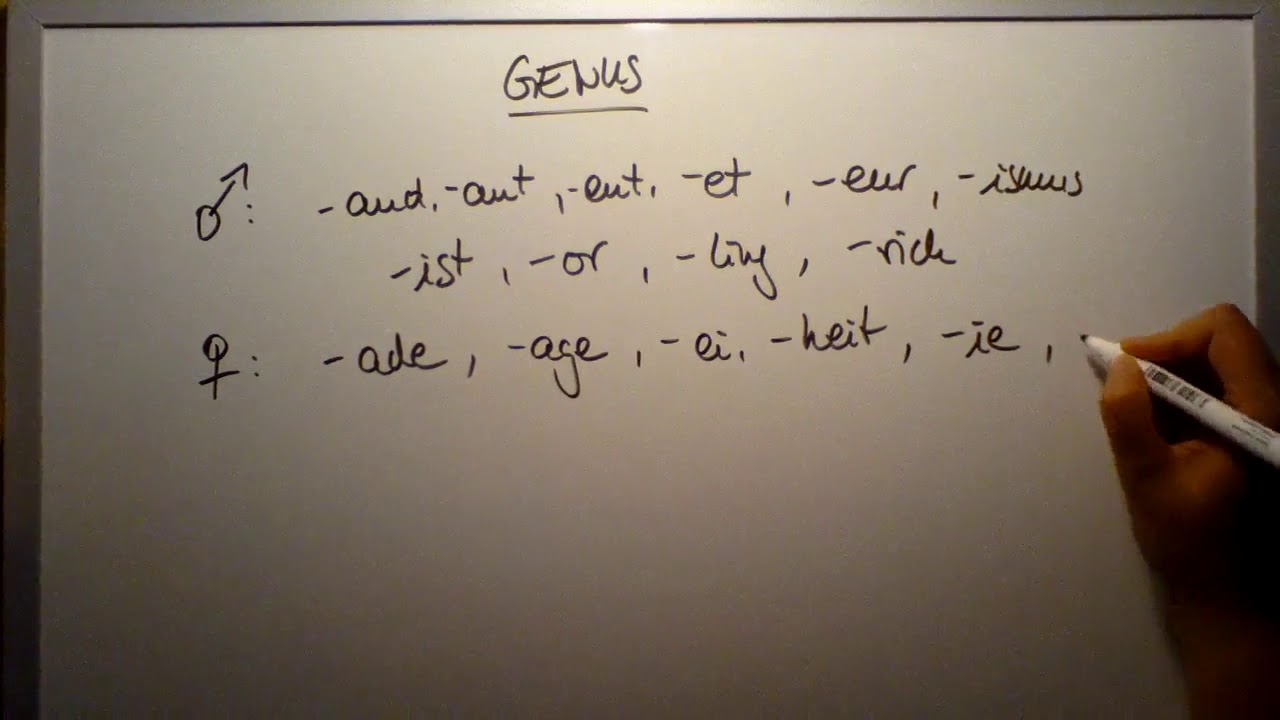 GENUS
♂: -and, -ant, -ent, -et, -eur, -ismus
-ist, -or, -ling, -rich
♀: -ade, -age, -ei, -heit, -ie,